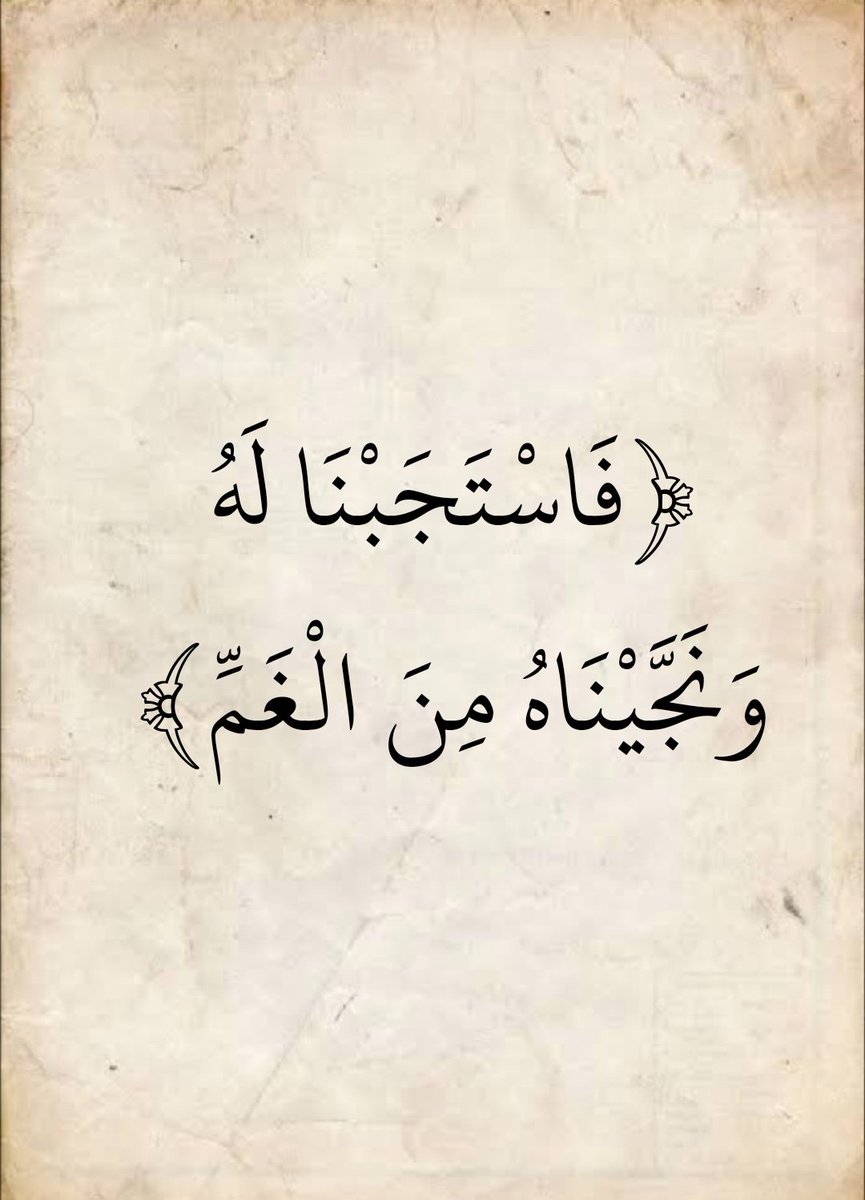 ﴿فَاسْتَجَبْنَا لَهُ
وَنَجَّيْنَاهُ مِنَ الْغَمِّ﴾